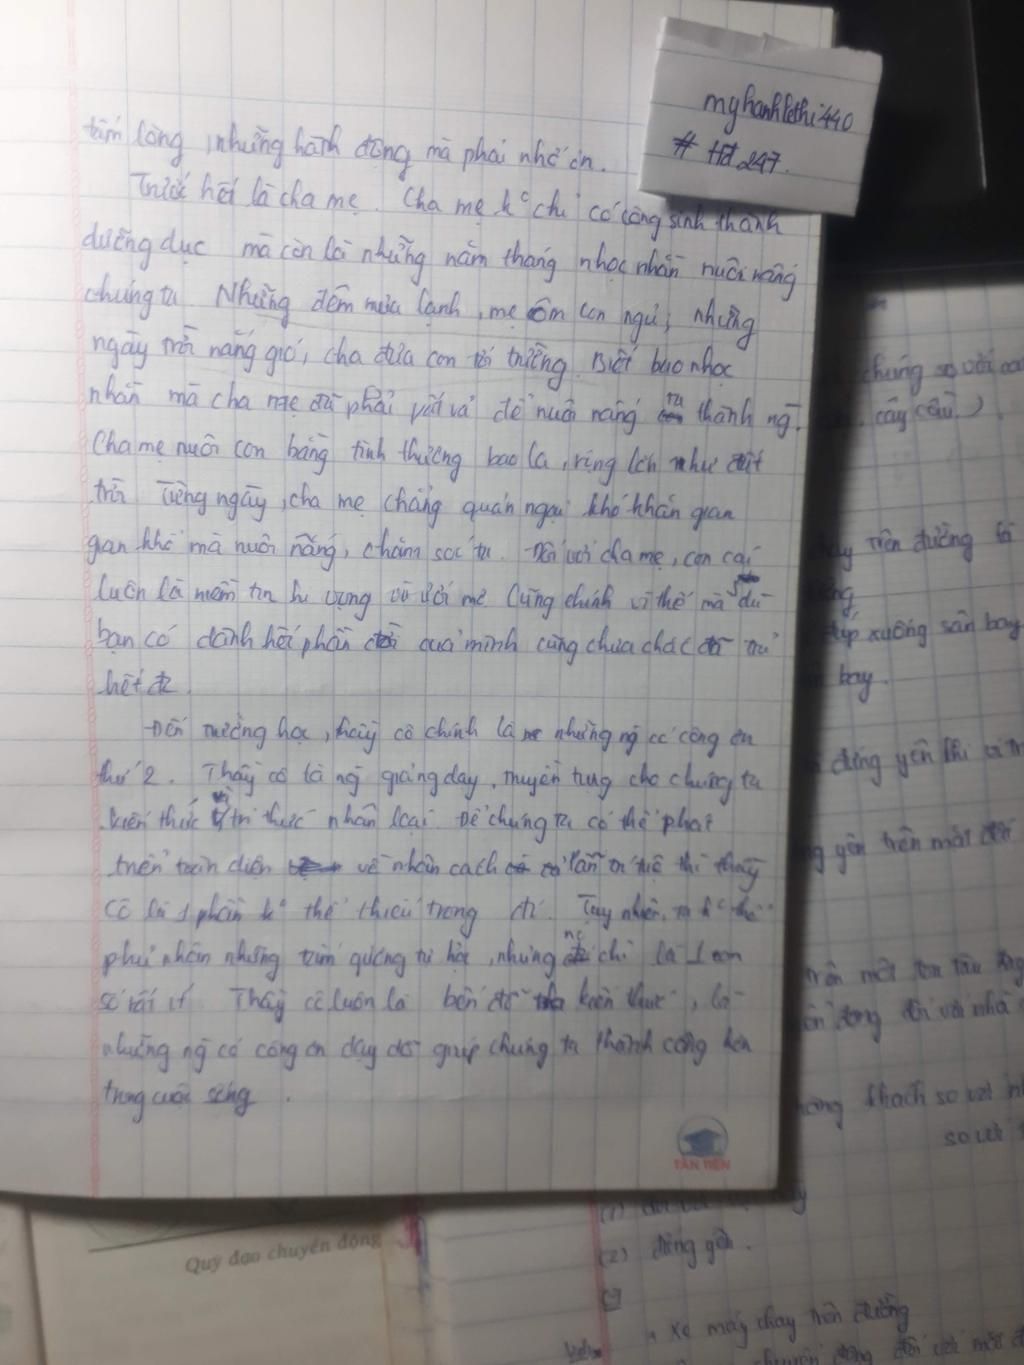 myhanhlethi440
# Hđ 247.
tấm lòng, những hành động mà phải nhớ ơn.
Trước hết là cha mẹ. Cha mẹ k° chỉ có công sinh thành
dưỡng dục mà còn là những năm tháng nhọc nhằn nuôi nấng
chúng ta. Những đêm mưa lạnh, mẹ ôm con ngủ; những
ngày trời nắng gió, cha đưa con tới trường. Biết bao nhọc
nhằn mà cha mẹ đã phải vất vả để nuôi nấng ta thành ng.
Cha mẹ nuôi con bằng tình thương bao la, rộng lớn như
trời. Từng ngày, cha mẹ chẳng quản ngại khó khăn gian
gan khổ mà nuôi nấng, chăm sóc ta. Đối với cha mẹ, con cái
luôn là niềm tin hi vọng Cũng chính vì thế mà dù
bạn có dành hết phần của mình cũng chưa chắc đã trả
hết đc.
Đến trường học, thầy cô chính là những ng có công ơn
thứ 2. Thầy cô là ng giảng dạy, truyền tụng cho chúng ta
kiến thức và tri thức nhân loại. Để chúng ta có thể phát
triển toàn diện về nhân cách lẫn trí tuệ thì thầy
cô là 1 phần k° thể thiếu trong đó. Tuy nhiên, ta k° thể
phủ nhận những tấm gương tự học, nhưng nó chỉ là 1 con
số rất ít. Thầy cô luôn là bến đỗ kiến thức, là
những ng có công ơn dạy dỗ giúp chúng ta thành công hơn
trong cuộc sống.
TÂN TIẾN
chúng so với
cây cầu)
chạy trên đường là
đáp xuống sân bay
bay.
đứng yên khi
yên trên mặt đất
trên một toa tàu
động đối với nhà
khách so với
so với
(2) đứng yên.
Quỹ đạo chuyển động
Xe máy chạy trên đường
chuyển động đối với mặt